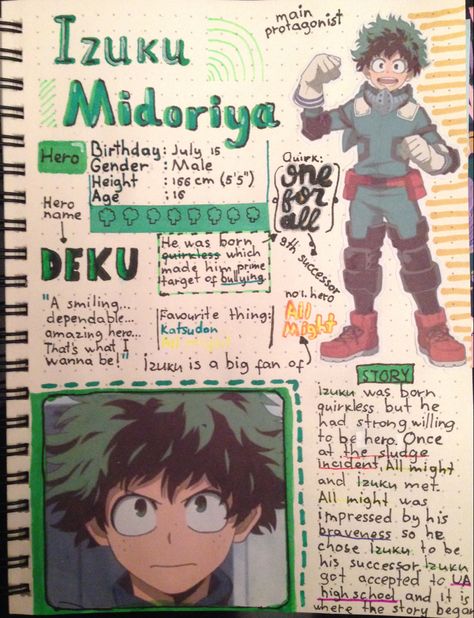 Izuku
Midoriya
main
protagonist
Hero
Birthday : July 15
Gender : Male
Height : 166 cm (5'5")
Age : 16
Quirk:
one
for
all
9th successor
Hero
name
DEKU
He was born
quirkless which
made him prime
target of bullying.
"A smiling...
dependable...
amazing hero...
That's what I
wanna be!"
Favourite thing:
Katsudon
All might
no1. hero
All
Might
izuku is a big fan of
STORY
Izuku was born
quirkless but he
had strong willing
to be hero. Once
at the sludge
incident, All might
and Izuku met.
All might was
impressed by his
braveness so he
chose Izuku to be
his successor. Izuku
got accepted to UA
high school and it is
where the story began